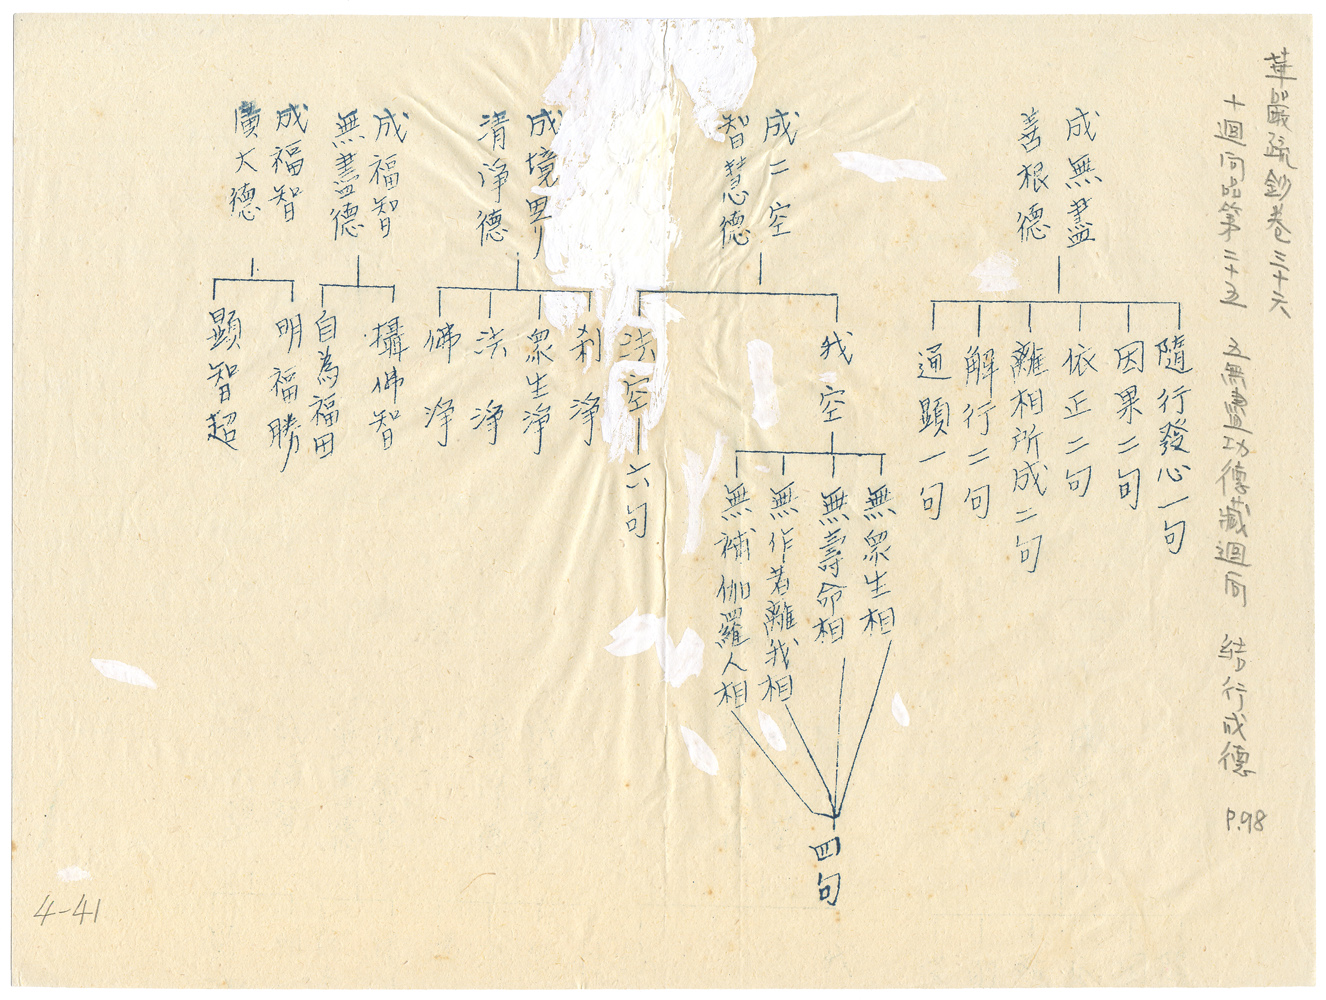 華嚴疏鈔卷三十六
十迴向品第二十五　五無盡功德藏迴向　結行成德　P.98
成無盡
善根德
隨行發心一句
因果二句
依正二句
離相所成二句
解行二句
通顯一句
成二空
智慧德
我空
無眾生相
無壽命相
無作者離我相
無補伽羅人相
四句
法空
六句
成境界
清淨德
剎淨
眾生淨
法淨
佛淨
成福智
無盡德
攝佛智
自為福田
成福智
廣大德
明福勝
顯智超
4-41